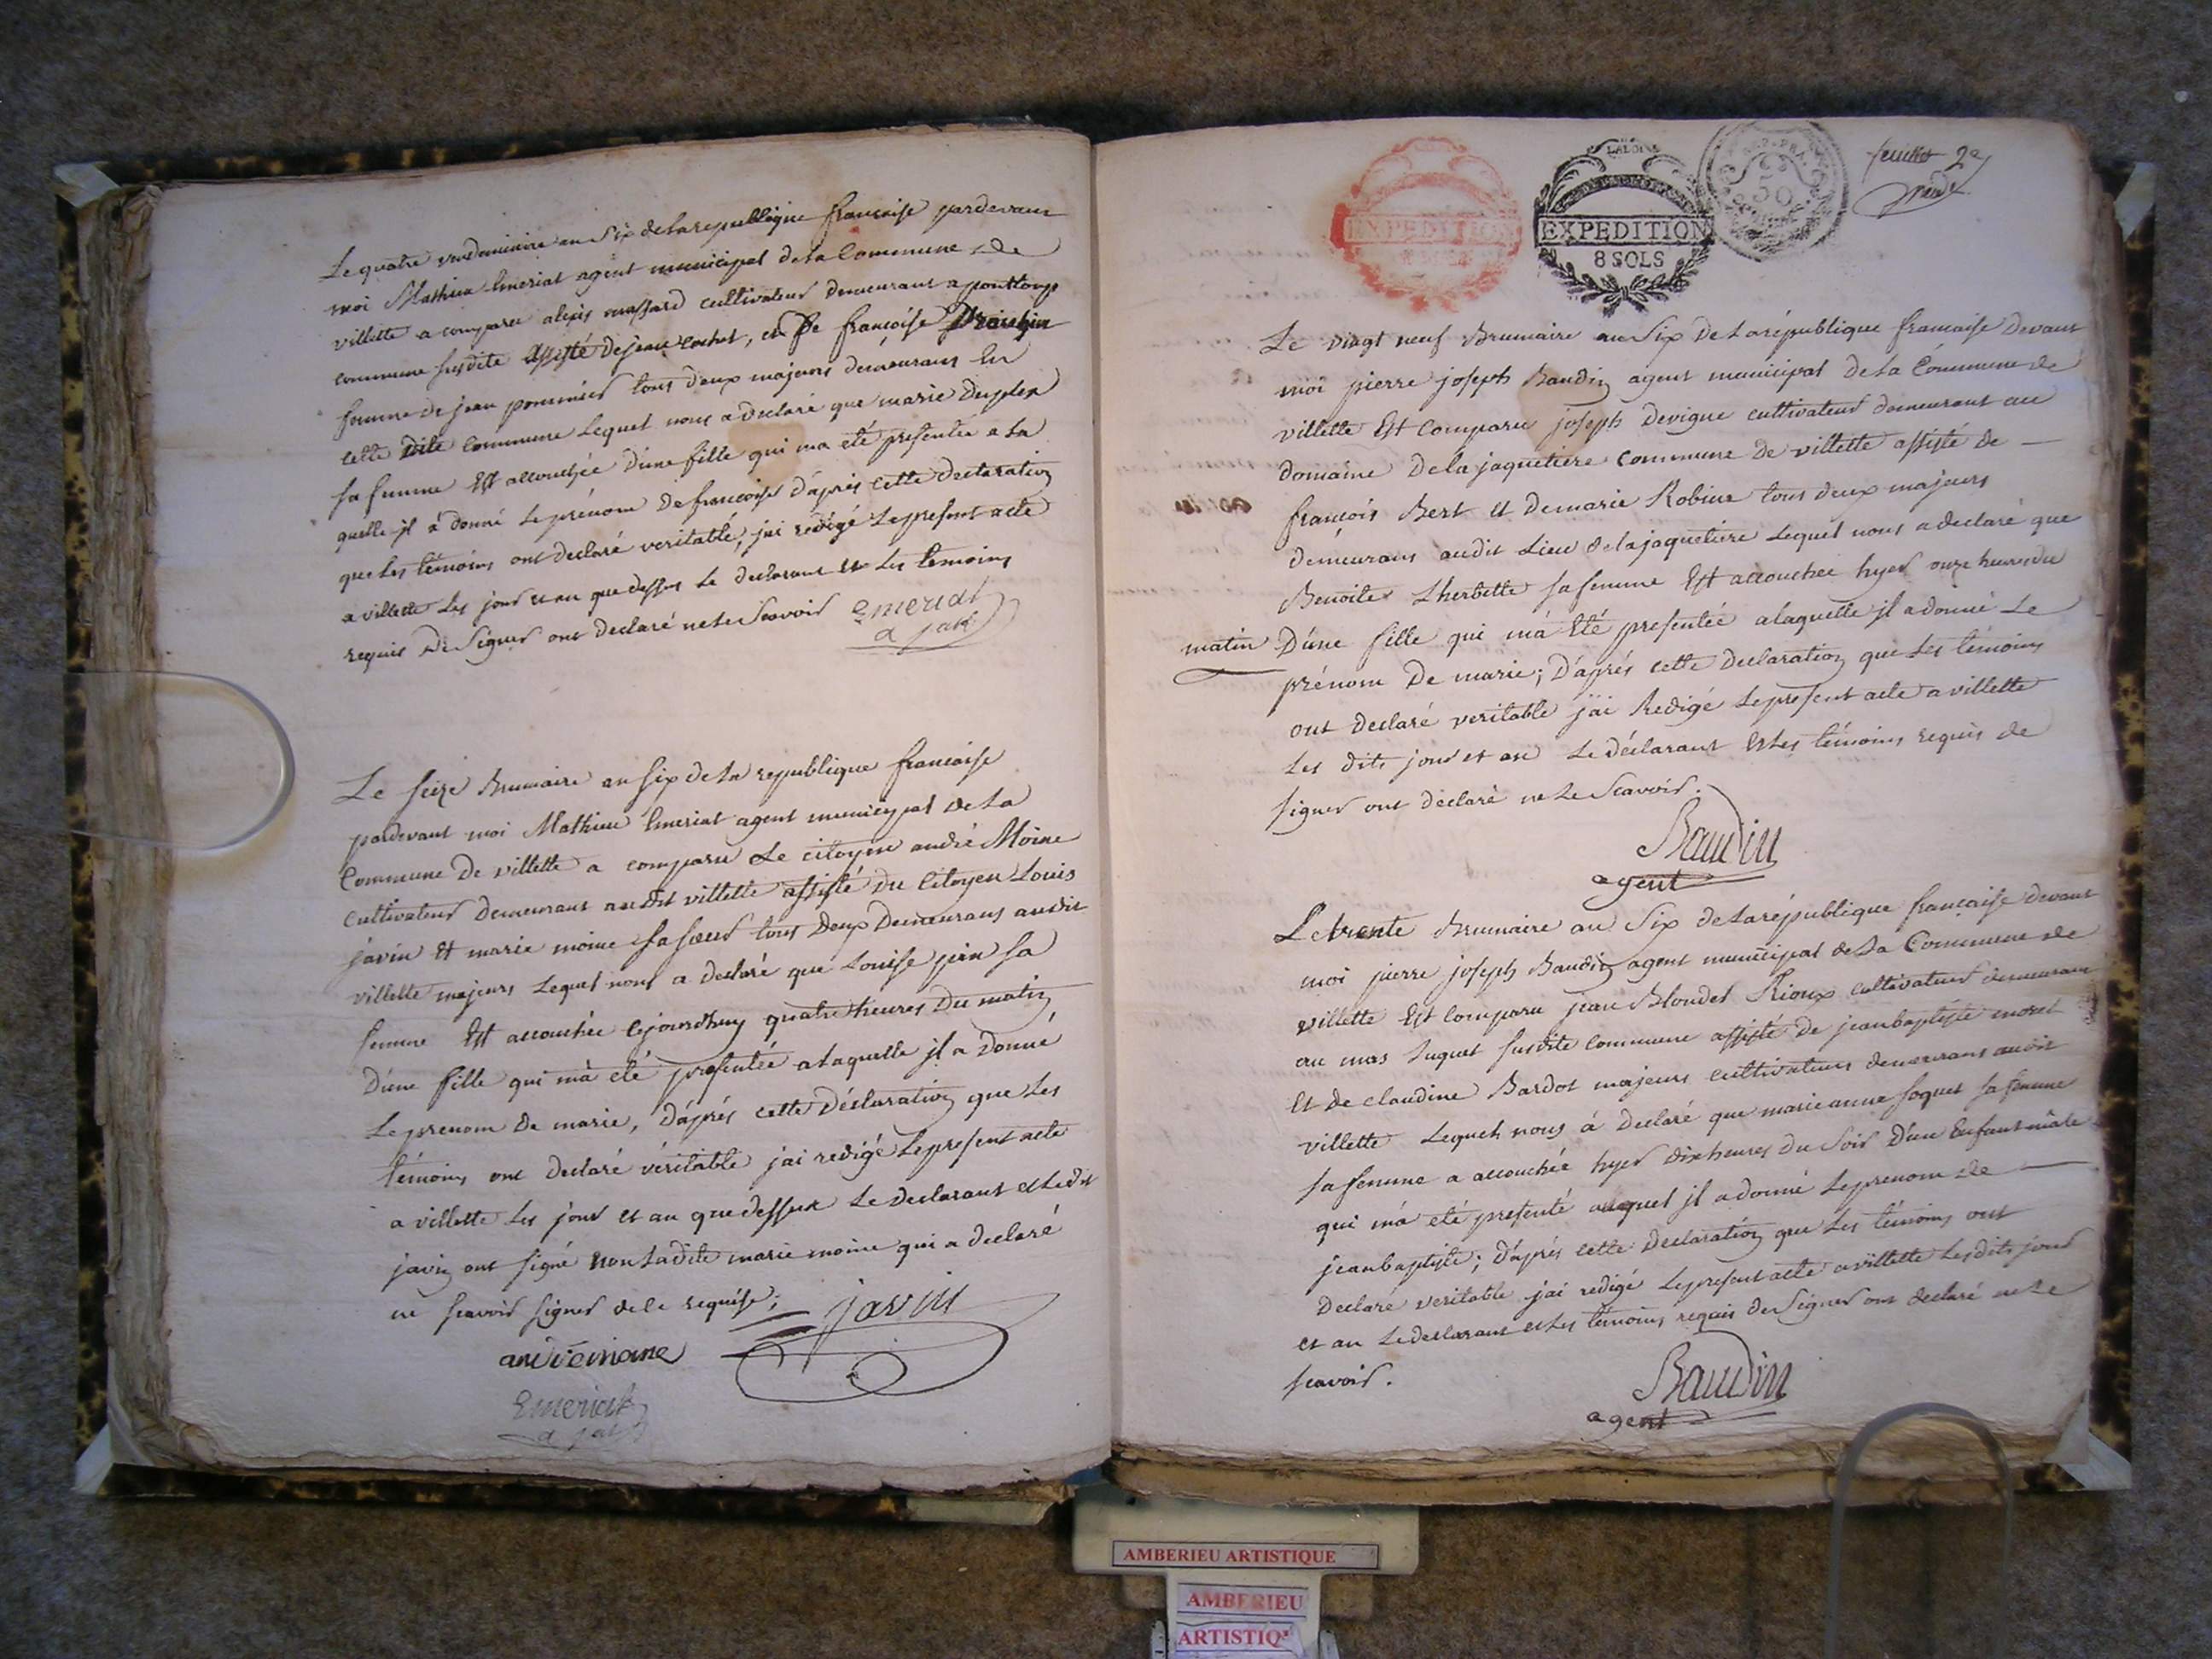 Le quatre vendemiaire an Six de la republique francaise pardevant
moi Mathieu Emeriat agent municipal de la Commune de
villette a comparu alexis massard cultivateur demeurant a pontlong
commune susdite assisté de jean cochet, et de francoise
femme de jean pommier tous deux majeurs demeurans En
cette dite commune Lequel nous a declaré que marie Duplex
sa femme Est accouchée d'une fille qui ma eté presentée a la
quelle jl a donné le prénom de francoise d'apres cette declaration
que les temoins ont declaré veritable, jai redigé le present acte
a villette les jour et an que dessus le declarant et les temoins
requis de signer ont declaré ne le scavoir emeriat
Le seize Brumaire an six de la republique francaise
pardevant moi Mathieu Emeriat agent municipal de la
Commune de villette a comparu le citoyen andré Moine
cultivateur demeurant audit villette assisté du citoyen Louis
javin et marie moine sa soeur tous deux demeurans audit
villette majeurs lequel nous a declaré que Louise
sa
femme Est accouchée cejourdhuy quatre heures du matin
d'une fille qui m'a eté presentée a laquelle jl a donné
le prenom de marie, d'après cette déclaration que les
témoins ont declaré véritable jai redigé le present acte
a villette les jour et an que dessus le declarant et ledit
javin ont signé non ladite marie moine qui a declaré
ne scavoir signer de ce requise;
javin
andré moine
Emeriat
feuillet 2e
LA LOI
EXPEDITION
EXPEDITION
8 SOLS
50
Le vingt neuf Brumaire an Six de la république francaise devant
moi pierre joseph Baudin agent municipal de la Commune de
villette Est comparu joseph Devigne cultivateur demeurant au
domaine de la jaquetiere commune de villette assisté de
françois Bert et de marie Robine tous deux majeurs
demeurans audit lieu de la jaquetiere lequel nous a declaré que
Benoite Lherbette sa femme Est accouchée hyer onze heures du
matin D'une fille qui m'a Eté presentée a laquelle jl a donné le
prénom De marie; D'après cette declaration que les témoins
ont declaré veritable j'ai Redigé le present acte a villette
les dits jour et an le déclarant et les témoins requis de
signer ont declaré ne le scavoir.
Baudin
agent
Le trente Brumaire an Six de la république française devant
moi pierre joseph Baudin agent municipal de la Commune de
villette Est comparu jean Blondel Rioux cultivateur demeurant
au mas Luquet susdite commune assisté de jean baptiste moret
et de claudine Bardot majeurs cultivateurs demeurans audit
villette Lequel nous a declaré que marie anne foquet sa femme
sa femme a accouchée hyer dix heures du soir d'un Enfant mâle
qui m'a eté presenté auquel jl a donné le prenom de
jean baptiste; d'après cette declaration que les témoins ont
declaré veritable jai redigé le present acte a villette les dits jour
et an le declarant et les témoins requis de signer ont declaré ne le
scavoir.
Baudin
agent
AMBERIEU ARTISTIQUE
AMBERIEU
ARTISTIQ